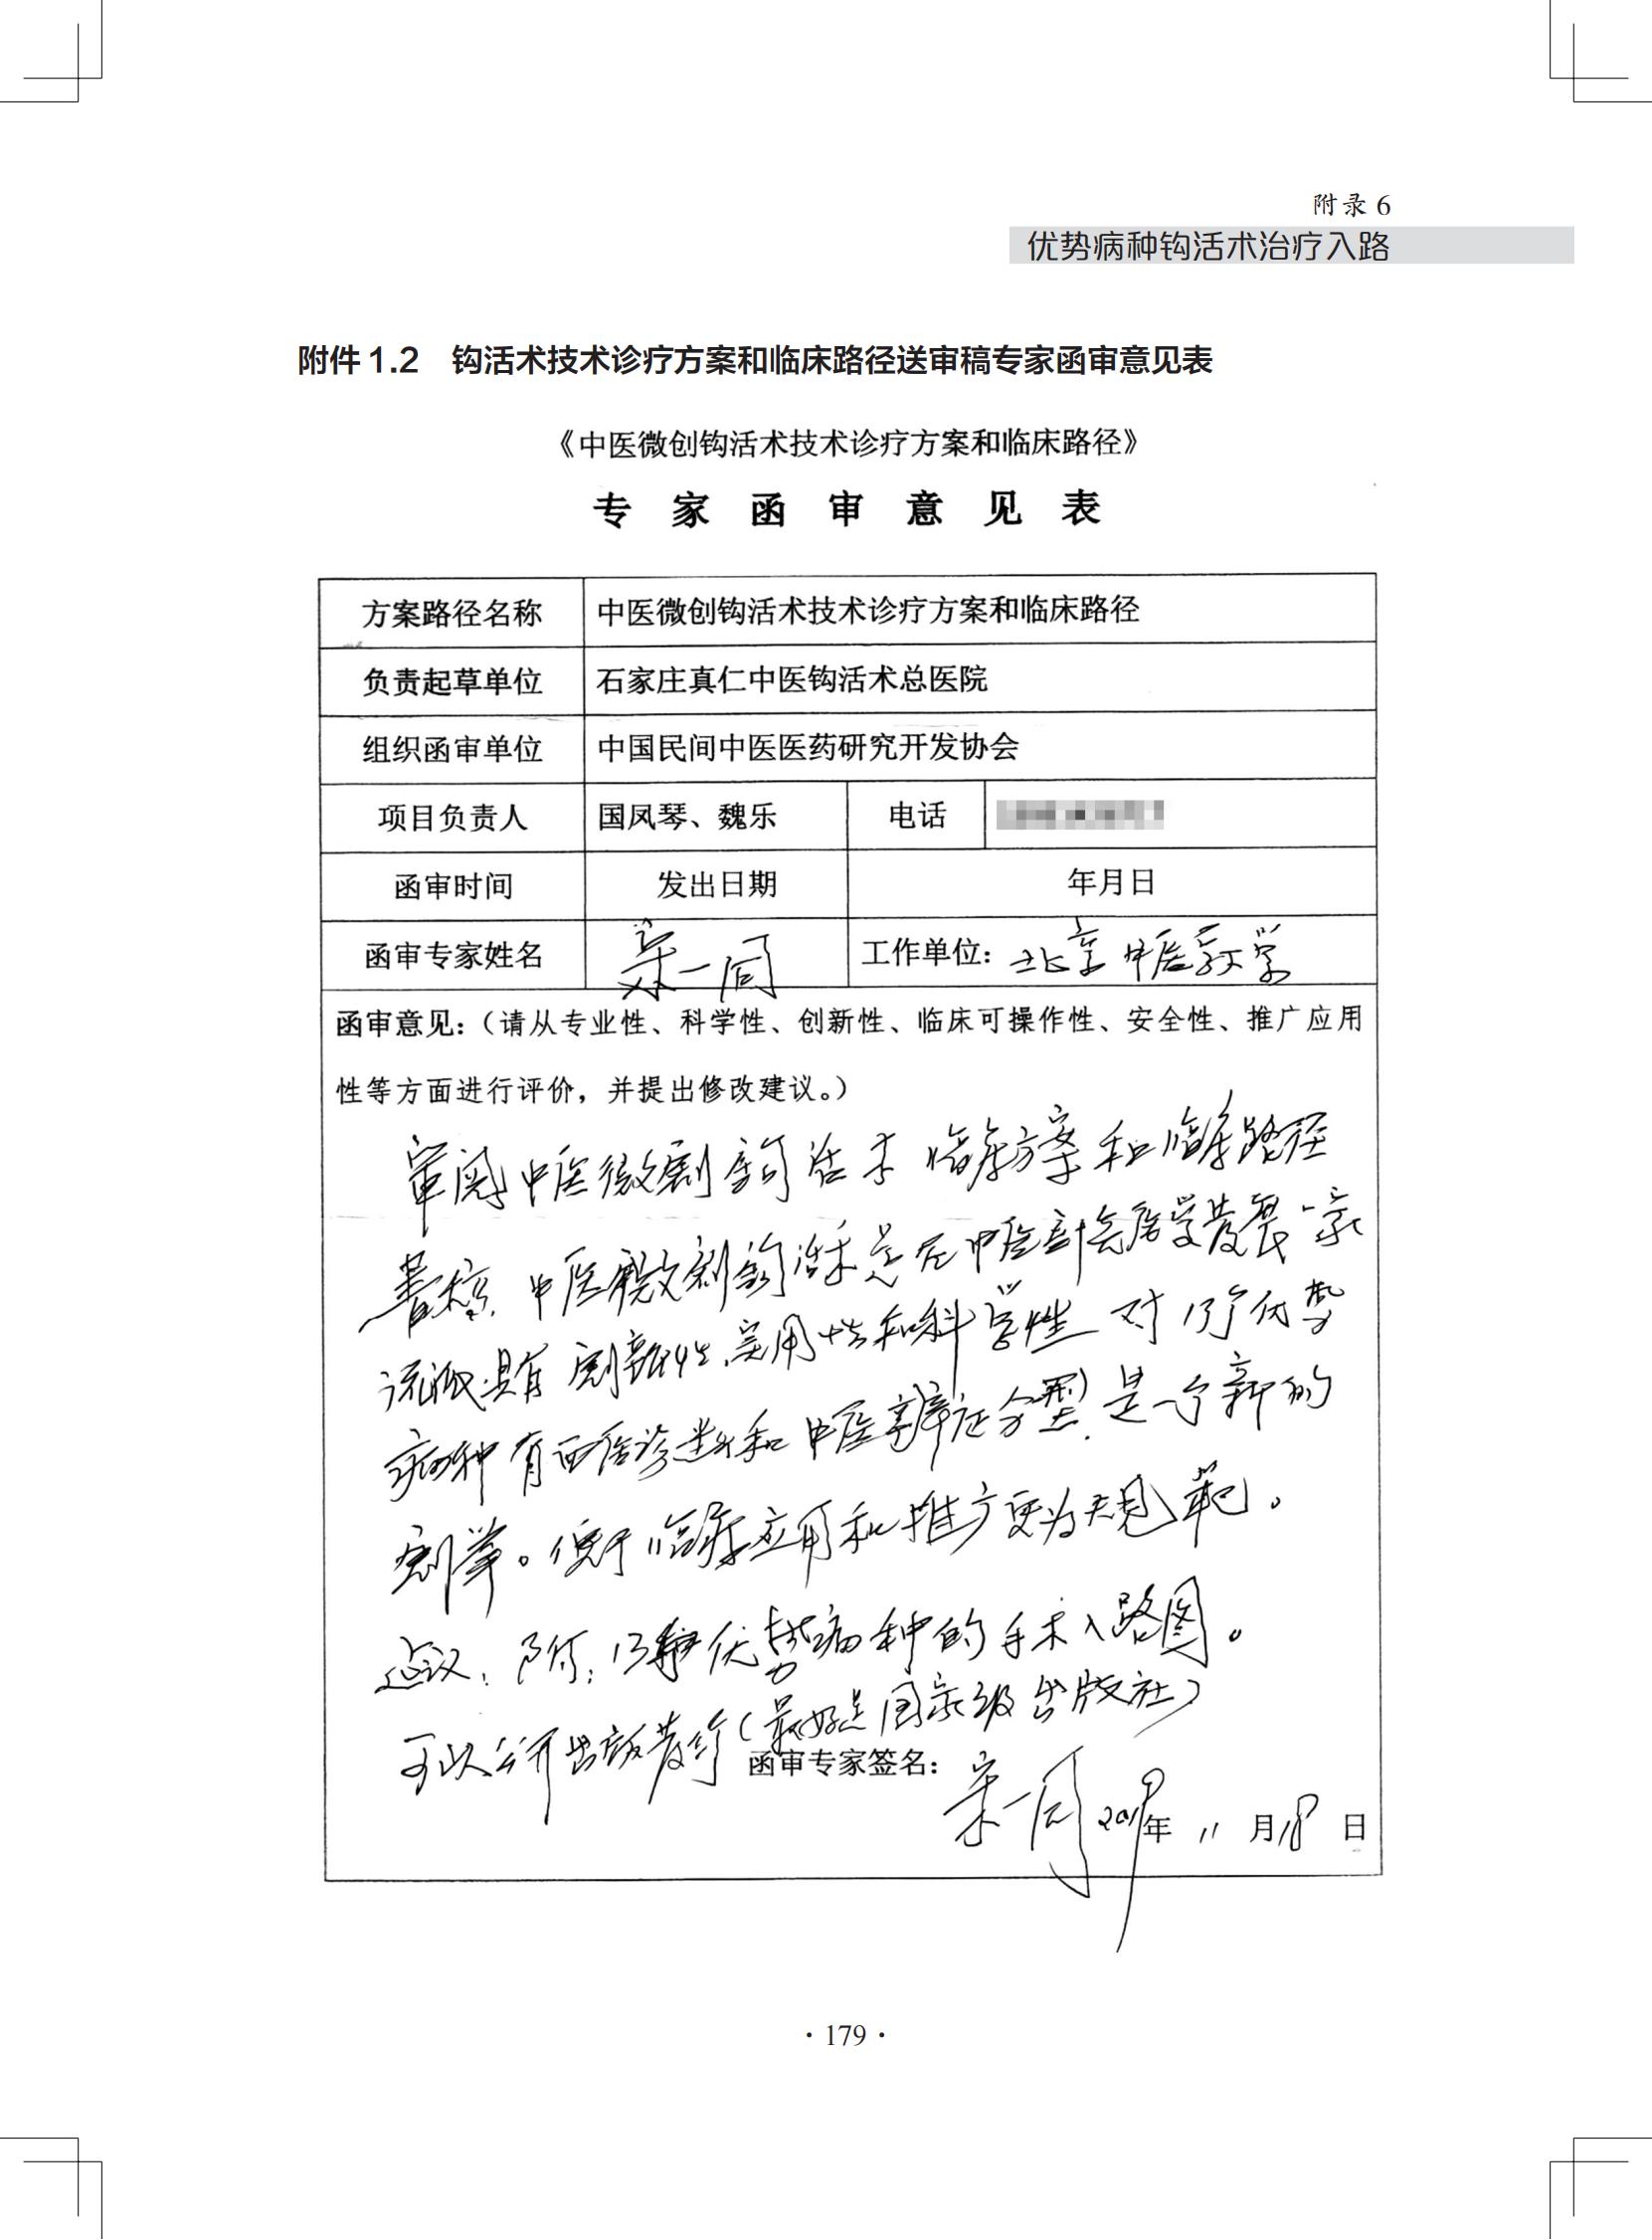 附录 6
优势病种钩活术治疗入路
附件 1.2 钩活术技术诊疗方案和临床路径送审稿专家函审意见表
《中医微创钩活术技术诊疗方案和临床路径》
专家函审意见表
方案路径名称 中医微创钩活术技术诊疗方案和临床路径
负责起草单位 石家庄真仁中医钩活术总医院
组织函审单位 中国民间中医医药研究开发协会
项目负责人 国凤琴、魏乐 电话
函审时间 发出日期 年月日
函审专家姓名 宋一同 工作单位：北京中医药大学
函审意见：（请从专业性、科学性、创新性、临床可操作性、安全性、推广应用
性等方面进行评价，并提出修改建议。）
审阅中医微创钩活术临床方案和临床路径
著稿，中医微创钩活术是在中医针灸医学发展
具有创新性、实用性和科学性 对13个优势
病种有西医诊断和中医辨证分型，是一个新的
创举。便于临床应用和推广更为规范。
建议：附：13种优势病种的手术入路图。
可以公开出版发行（最好是国家级出版社）
函审专家签名：宋一同 2019年 11 月18 日
· 179 ·